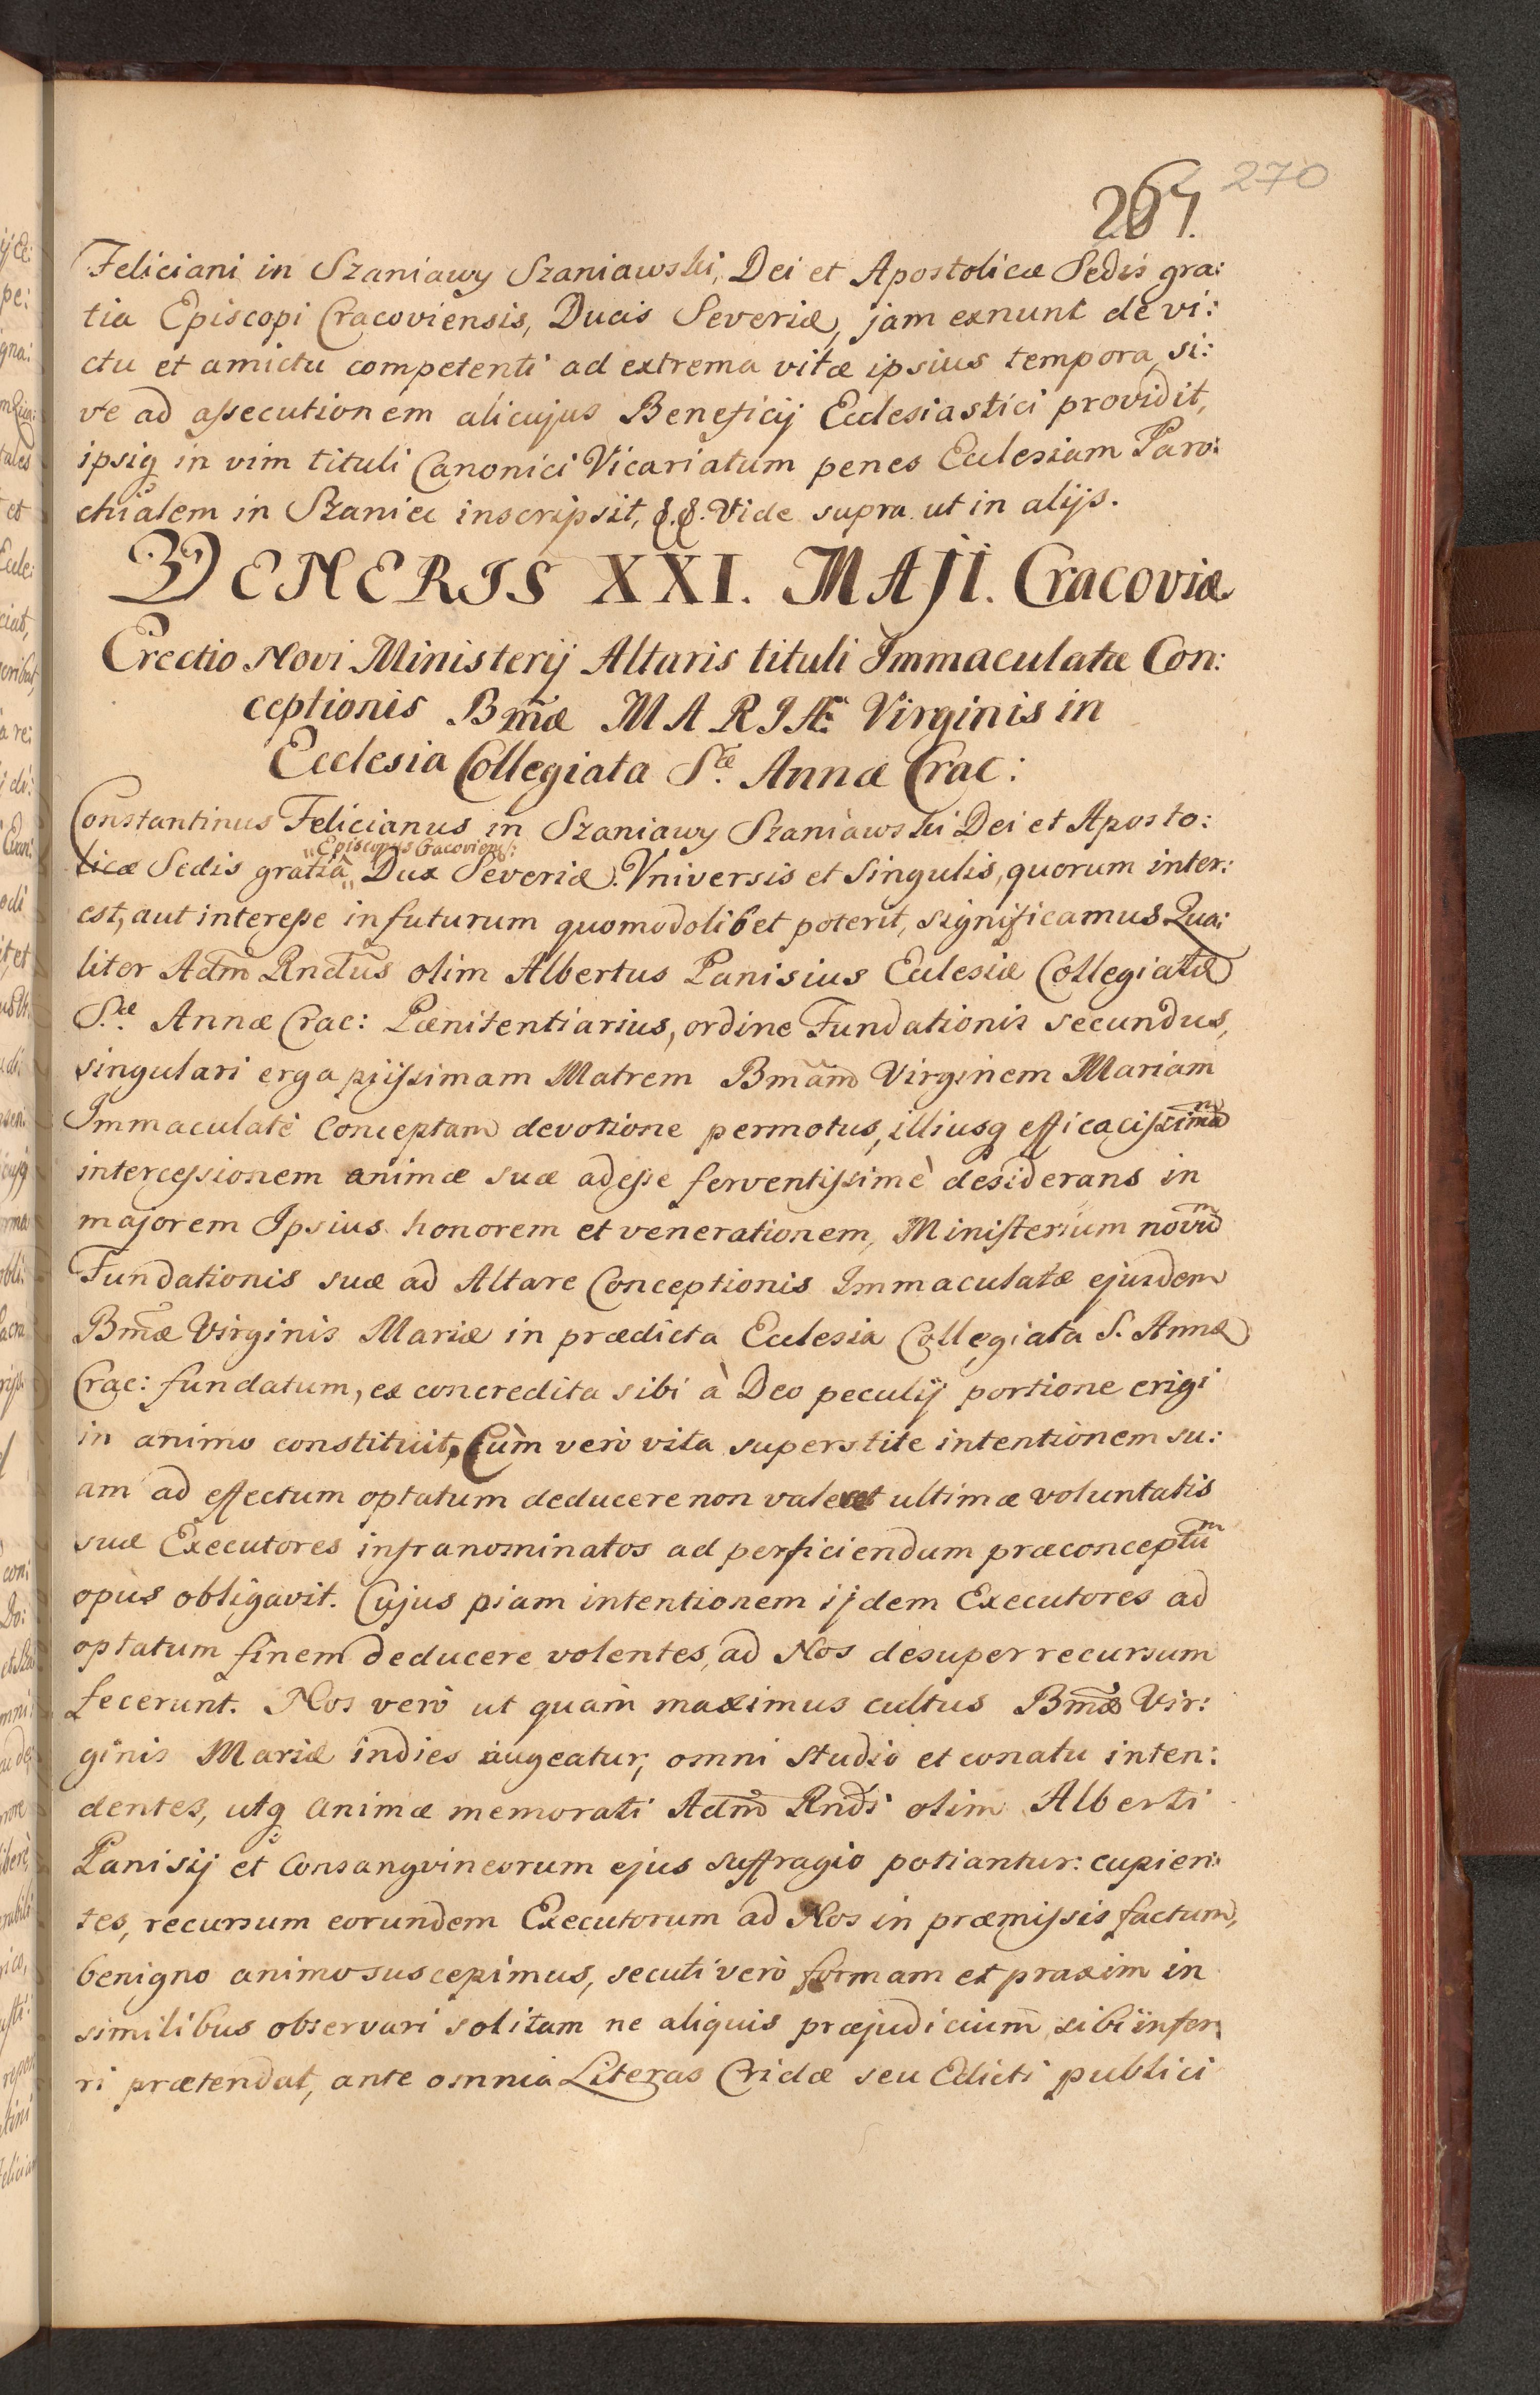 267. 270
Feliciani in Szaniawy Szaniawski, Dei et Apostolicæ Sedis gra:
tia Episcopi Cracoviensis, Ducis Severiæ, jam exnunt de vi:
ctu et amictu competenti ad extrema vitæ ipsius tempora, si:
ve ad assecutionem alicujus Beneficij Ecclesiastici providit,
ipsiq in vim tituli Canonici Vicariatum penes Ecclesiam Paro:
chialem in Szaniec inscripsit, &.&. Vide supra ut in alijs.
VENERIS XXI. MAJI. Cracoviæ
Erectio Novi Ministerij Altaris tituli Immaculatæ Con:
ceptionis Bm̃æ MARIÆ Virginis in
Ecclesia Collegiata S.æ Annæ Crac:
Constantinus Felicianus in Szaniawy Szaniawski Dei et Aposto:
licæ Sedis gratiâ „Episcopus Cracovien̄s:„ Dux Severiæ. Vniversis et singulis, quorum inter:
est, aut interesse in futurum quomodolibet poterit, significamus Qua:
liter Adm̃ Rndus̃ olim Albertus Panisius Ecclesiæ Collegiatæ
S.æ Annæ Crac: Pœnitentiarius, ordine Fundationis secundus,
singulari erga piissimam Matrem Bm̃am Virginem Mariam
Immaculatè Conceptam devotione permotus, illiusq efficacissimam
intercessionem animæ suæ adesse ferventissimè desiderans in
majorem Ipsius honorem et venerationem, Ministerium novum
Fundationis suæ ad Altare Conceptionis Immaculatæ ejusdem
Bm̃æ Virginis Mariæ in prædicta Ecclesia Collegiata S. Annæ
Crac: fundatum, ex concredita sibi à Deo peculij portione erigi
in animo constituit, Cùm verò vita superstite intentionem su:
am ad effectum optatum deducere non valeret ultimæ voluntatis
suæ Executores infranominatos ad perficiendum præconceptum
opus obligavit. Cujus piam intentionem ijdem Executores ad
optatum finem deducere volentes, ad Nos desuper recursum
fecerunt. Nos verò ut quàm maximus cultus Bm̃æ Vir:
ginis Mariæ indies augeatur, omni studio et conatu inten:
dentes, utq animæ memorati Adm̃ Rndĩ olim Alberti
Panisij et Consangvineorum ejus suffragio potiantur: cupien:
tes, recursum eorundem Executorum ad Nos in præmissis factum,
benigno animo suscepimus, secuti verò formam et praxim in
similibus observari solitam ne aliquis præjudicium sibi infer:
ri prætendat, ante omnia Literas Cridæ seu Edicti publici